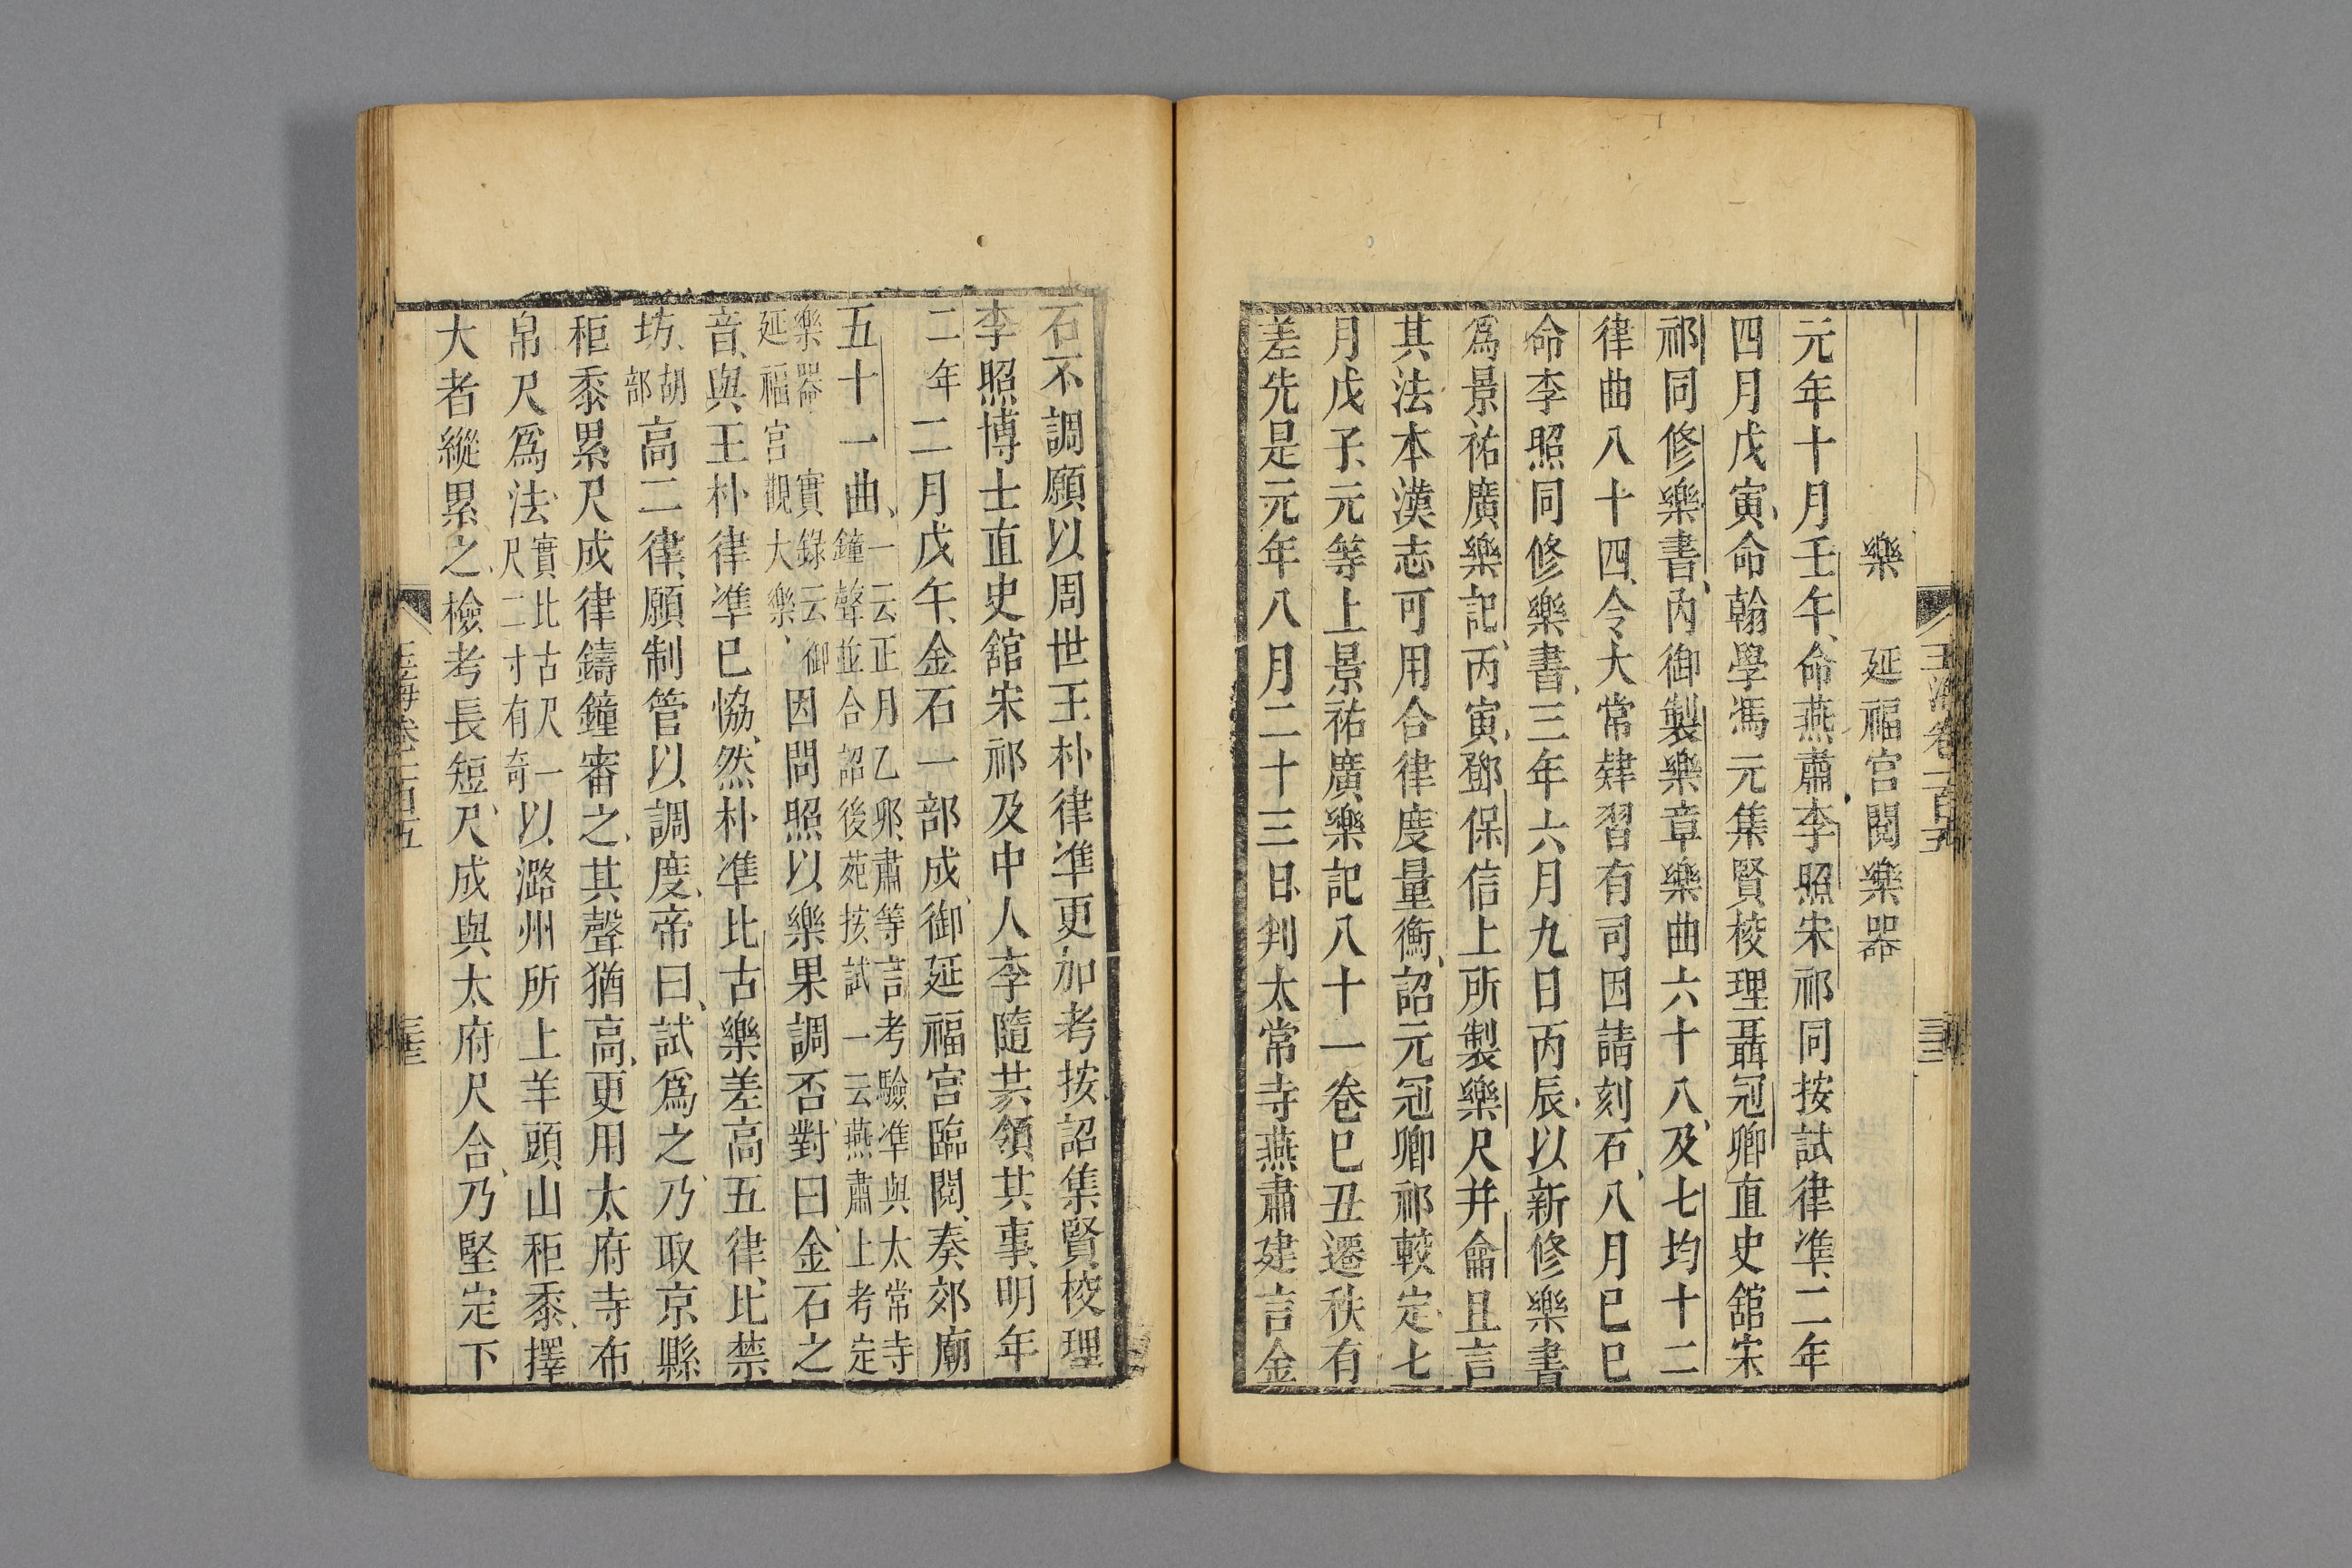 玉海卷一百五
樂　延福宮閱樂器
元年十月壬午命燕肅李照宋祁同按試律準二年
四月戊寅命翰學馮元集賢校理聶冠卿直史舘宋
祁同修樂書丙御製樂章樂曲六十八及七均十二
律曲八十四令大常肄習有司因請刻石八月己巳
命李照同修樂書三年六月九日丙辰以新修樂書
爲景祐廣樂記丙寅鄧保信上所製樂尺并龠且言
其法本漢志可用合律度量衡詔元冠卿祁較定七
月戊子元等上景祐廣樂記八十一卷巳丑遷秩有
差先是元年八月二十三日判太常寺燕肅建言金
石不調願以周世王朴律準更加考按詔集賢校理
李照博士直史舘宋祁及中人李隨共領其事明年
二年二月戊午金石一部成御延福宮臨閱奏郊廟
五十一曲一云正月乙卯肅等言考驗準與太常寺
鐘聲並合詔後苑按試一云燕肅上考定
樂器　實錄云御
延福宮觀大樂因問照以樂果調否對曰金石之
音與王朴律準已恊然朴準比古樂差高五律比禁
坊胡部高二律願制管以調度帝曰試爲之乃取京縣
秬黍累尺成律鑄鐘審之其聲猶高更用太府寺布
帛尺爲法實比古尺一
尺二寸有奇以潞州所上羊頭山秬黍擇
大者縱累之檢考長短尺成與太府尺合乃堅定下
玉海卷一百五